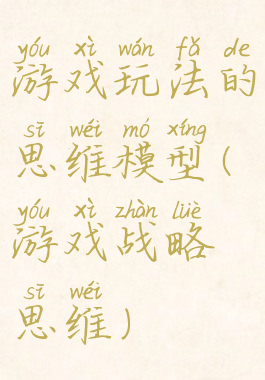 yóu xì wán fǎ de
游戏玩法的
sī wéi mó xíng
思维模型(
yóu xì zhàn lüè
游戏战略
sī wéi
思维)